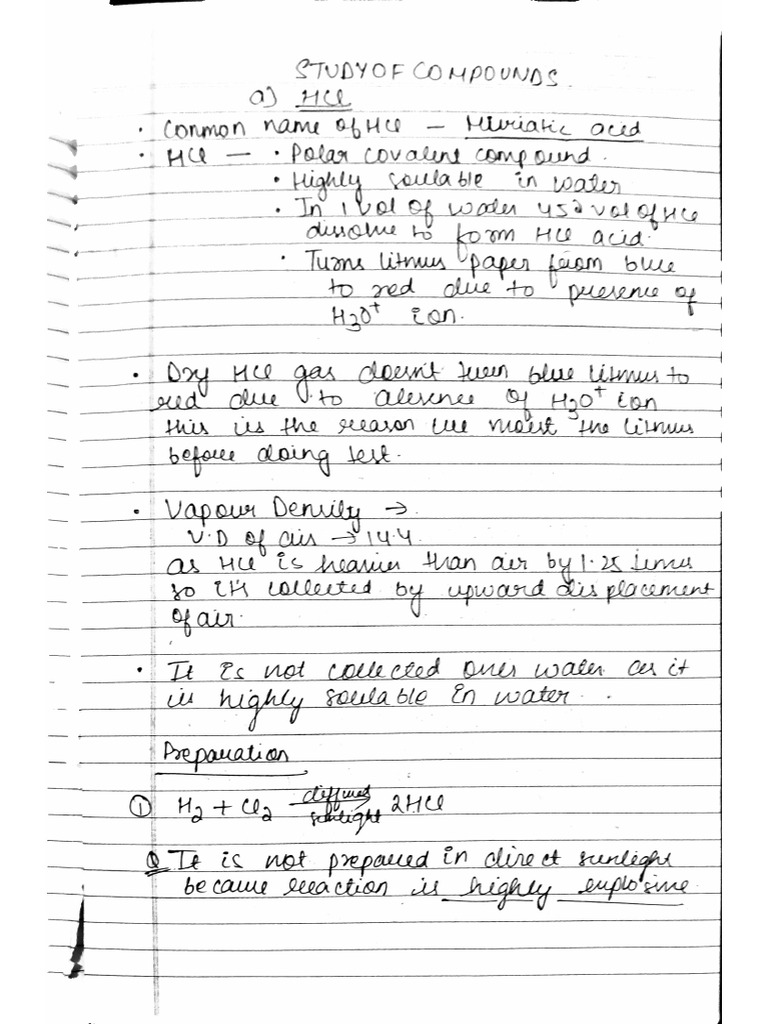 STUDY OF COMPOUNDS
a) HCl
• Common name of HCl – Muriatic acid
• HCl – • Polar covalent compound.
• Highly soulable in water
• In 1 vol of water 452 vol of HCl
dissolve to form HCl acid.
• Turns litmus paper from blue
to red due to presence of
H3O+ ion.
• Dry HCl gas doesn't turn blue litmus to
red due to absence of H3O+ ion
this is the reason we moist the litmus
before doing test.
• Vapour Density →
V.D of air → 14.4
as HCl is heavier than air by 1.25 times
so it's collected by upward displacement
of air.
• It is not collected over water as it
is highly soulable in water.
Preparation
① H2 + Cl2 diffused sunlight → 2HCl
Q It is not prepared in direct sunlight
because reaction is highly explosive